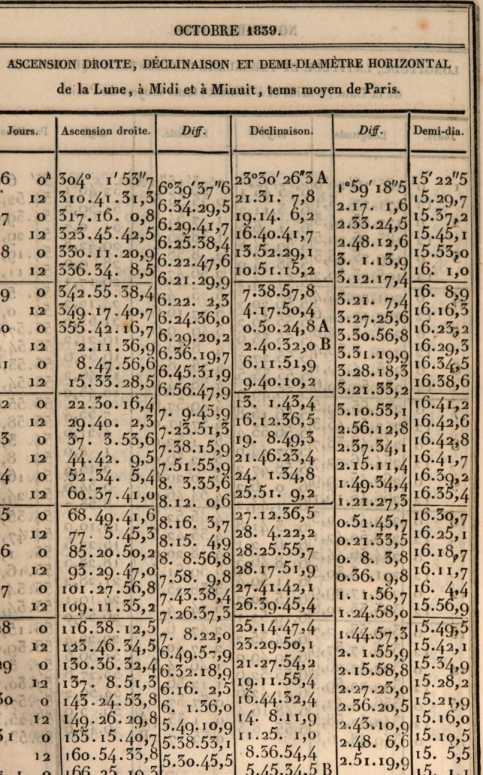 OCTOBRE 1839.
ASCENSION DROITE, DÉCLINAISON ET DEMI-DIAMÈTRE HORIZONTAL
de la Lune, à Midi et à Minuit, tems moyen de Paris.
Jours. Ascension droite. Diff. Déclinaison. Diff. Demi-dia.
6 0ʰ 304° 1′53″7 23°30′26″3 A 15′22″5
6°39′37″6 1°59′18″5
12 310.41.31,3 21.31. 7,8 15.29,7
6.34.29,5 2.17. 1,6
7 0 317.16. 0,8 19.14. 6,2 15.37,2
6.29.41,7 2.33.24,5
12 323.45.42,5 16.40.41,7 15.45,1
6.25.38,4 2.48.12,6
8 0 330.11.20,9 13.52.29,1 15.53,0
6.22.47,6 3. 1.13,9
12 336.34. 8,5 10.51.15,2 16. 1,0
6.21.29,9 3.12.17,4
9 0 342.55.38,4 7.38.57,8 16. 8,9
6.22. 2,3 3.21. 7,4
12 349.17.40,7 4.17.50,4 16.16,3
6.24.36,0 3.27.25,6
0 0 355.42.16,7 0.50.24,8 A 16.23,2
6.29.20,2 3.30.56,8
12 2.11.36,9 2.40.32,0 B 16.29,3
6.36.19,7 3.31.19,9
1 0 8.47.56,6 6.11.51,9 16.34,5
6.45.31,9 3.28.18,3
12 15.33.28,5 9.40.10,2 16.38,6
6.56.47,9 3.21.33,2
2 0 22.30.16,4 13. 1.43,4 16.41,2
7. 9.45,9 3.10.53,1
12 29.40. 2,3 16.12.36,5 16.42,6
7.23.51,3 2.56.12,8
3 0 37. 3.53,6 19. 8.49,3 16.42,8
7.38.15,9 2.37.34,1
12 44.42. 9,5 21.46.23,4 16.41,7
7.51.55,9 2.15.11,4
4 0 52.34. 5,4 24. 1.34,8 16.39,2
8. 3.35,6 1.49.34,4
12 60.37.41,0 25.51. 9,2 16.35,4
8.12. 0,6 1.21.27,3
5 0 68.49.41,6 27.12.36,5 16.30,7
8.16. 3,7 0.51.45,7
12 77. 5.45,3 28. 4.22,2 16.25,1
8.15. 4,9 0.21.33,5
6 0 85.20.50,2 28.25.55,7 16.18,7
8. 8.56,8 0. 8. 3,8
12 93.29.47,0 28.17.51,9 16.11,7
7.58. 9,8 0.36. 9,8
7 0 101.27.56,8 27.41.42,1 16. 4,4
7.43.38,4 1. 1.56,7
12 109.11.35,2 26.39.45,4 15.56,9
7.26.37,3 1.24.58,0
8 0 116.38.12,5 25.14.47,4 15.49,5
7. 8.22,0 1.44.57,3
12 123.46.34,5 23.29.50,1 15.42,1
6.49.57,9 2. 1.55,9
9 0 130.36.32,4 21.27.54,2 15.34,9
6.32.18,9 2.15.58,8
12 137. 8.51,3 19.11.55,4 15.28,2
6.16. 2,5 2.27.23,0
30 0 143.24.53,8 16.44.32,4 15.21,9
6. 1.36,0 2.36.20,5
12 149.26.29,8 14. 8.11,9 15.16,0
5.49.10,9 2.43.10,9
31 0 155.15.40,7 11.25. 1,0 15.10,5
5.38.53,1 2.48. 6,6
12 160.54.33,8 8.36.54,4 15. 5,5
5.30.45,5 2.51.19,9
0 166.25.19,3 5.45.34,5 B